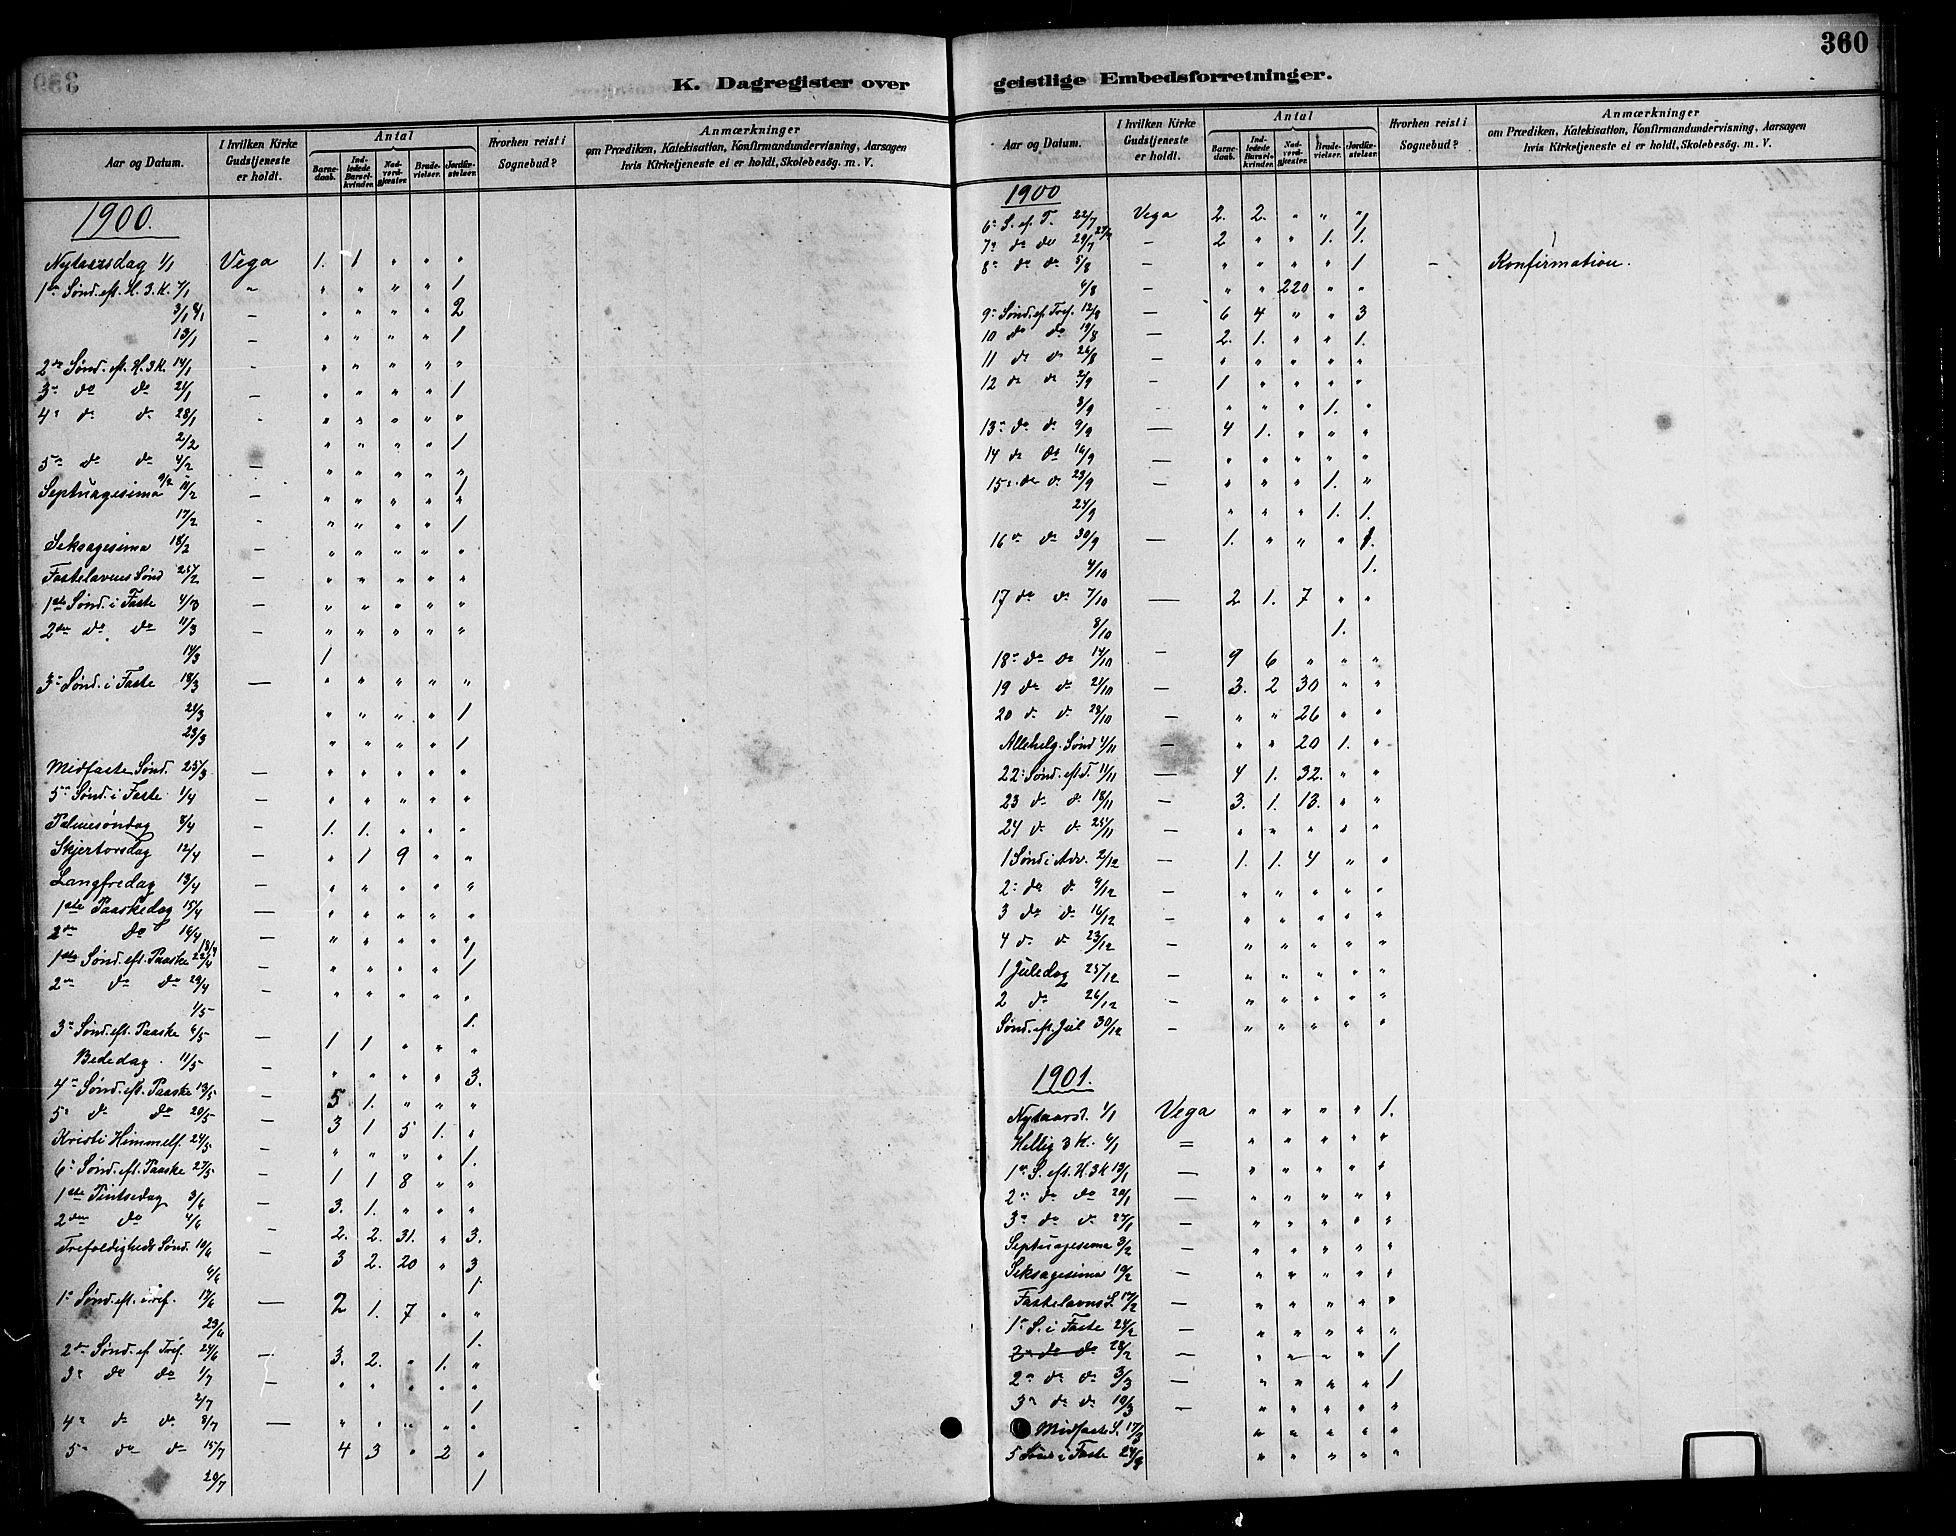 360
K. Dagregister over geistlige Embedsforretninger.
Aar og Datum. | I hvilken Kirke Gudstjeneste er holdt. | Antal | Barnedaab. | Indledede Barselkvinder. | Nadverdgjæster. | Brudevielser. | Jordfæstelser. | Hvorhen reist i Sognebud? | Anmærkninger om Prædiken, Katekisation, Konfirmandundervisning, Aarsagen hvis Kirketjeneste ei er holdt, Skolebesøg. m. V.
1900.
Nytaarsdag 1/1 Vega 1. 1 " " "
1ste Sønd. eft. H. 3. K. 7/1 " " " " " 1
3/1 8/1 — " " " " 2
13/1 — " " " " 1
2den Sønd. eft. H. 3 K. 14/1 - " " " " "
3. do do 21/1 — " " " " 1
4. do do 28/1 - " " " " "
2/2 " " " " 1
5. do do 4/2 — " " " " "
Septuagesima 9/2 11/2 — " " " " 1 "
17/2 - " " " " 1
Seksagesima 18/2 — " " " " "
Fastelavens Sønd 25/2 — " " " " "
1ste Sønd. i Faste 4/3 — " " " " "
2den do do 11/3 — " " " " "
14/3 1
3. Sønd. i Faste 18/3 — " " " " "
21/3 " " " " 1
23/3 " " " " 1
Midfaste Sønd. 25/3 — " " " " "
5. Sønd. i Faste 1/4 — " " " " "
Palmesøndag 8/4 — 1. 1. " " "
Skjertorsdag 12/4 — " 1 9 " "
Langfredag 13/4 — " " " " "
1ste Paaskedag 15/4 — " " " " "
2den do 16/4 — " " " " "
1ste Sønd. eft. Paaske 18/4 22/4 — " " " " 1 1
2den do do 29/4 — " " " " "
1/5 1.
3. Sønd. eft. Paaske 6/5 — 1 1 " " "
Bededag. 11/5 — " " " " 3.
4. Sønd. eft. Paaske 13/5 — 5 1. " " "
5. do do 20/5 — 3 1 5 1. "
Kristi Himmelf. 24/5 — " " " " 1.
6. Sønd. eft. Paaske 27/5 — 1 1 8 " "
1ste Pintsedag 3/6 — 3. 1. " " "
2den do 4/6 — 2. 2. 31. " 3.
Trefoldigheds Sønd. 10/6 — 3 2. 20 " 3
6/6 1
1. Sønd. eft. Tref. 17/6 — 2 1. 7 " "
23/6 1.
2den Sønd. ef. Tref. 24/6 — 3. 2. " 1. "
3. do do 1/7 — " " " " "
2/7 1
4. do do 8/7 — " " " " "
5. do do 15/7 4 3 " 2 "
20/7 1
1900
6. S. ef. T. 22/7 Vega 2. 2. " " "
7. do do 29/7 — 2 " " 1. 1.
8. do do 5/8 — " " " " 1 — Konfirmation.
6/8 — " " 220 " "
9. Sønd. ef. Tref. 12/8 — 6 4 " " 3
10 do do 19/8 — 2. 1. " " 1.
11 do do 26/8 — " " " " "
12 do do 2/9 — 1 " " " "
8/9 - " " " 1. "
13. do do 9/9 — 4 1. " " "
14 do do 16/9 — " " " " "
15. do do 23/9 — " " " 1. "
24/9 " " " 1. 1.
16 do do 30/9 — 1. " " " 1.
4/10 1.
17 do do 7/10 — 2 1. 7 " "
8/10 1.
18. do do 14/10 — 9 6 " " "
19 do do 21/10 — 3. 2 30 " "
20 do do 28/10 — " " 26 " "
Allehelg. Sønd 4/11 — " " 20 1. "
22. Sønd. eft T. 11/11 — 4 1. 32. " "
23 do do 18/11 — 3. 1. 13. " "
24 do do 25/11 " " " " "
1 Sønd i Adv. 2/12 — 1. 1. 4 " "
2. do do 9/12 — " " " " "
3 do do 16/12 — " " " " "
4 do do 23/12 — " " " " "
1 Juledag 25/12 — " " " " "
2 do 26/12 — " " " " "
Sønd. eft. Jul 30/12 — " " " " "
1901.
Nytaarsd. 1/1 Vega " " " " 1.
Hellig 3 K. 6/1 = " " " " "
1. S. eft. H. 3 K 13/1 — " " " " "
2. do do 20/1 — " " " " "
3. do do 27/1 — " " " " "
Septuagesima 3/2 — " " " " "
Seksagesima 10/2 — " " " " "
Fastelavns S. 17/2 — " " " " "
1. S. i Faste 24/2 — " " " " "
2. do do 28/2 — " " " " 1
2. do do 3/3 — " " " " 1
3. do do 10/3 — " " " " "
Midfaste S. 17/3 " " " " "
5 Sønd i Faste 24/3 " " " " "